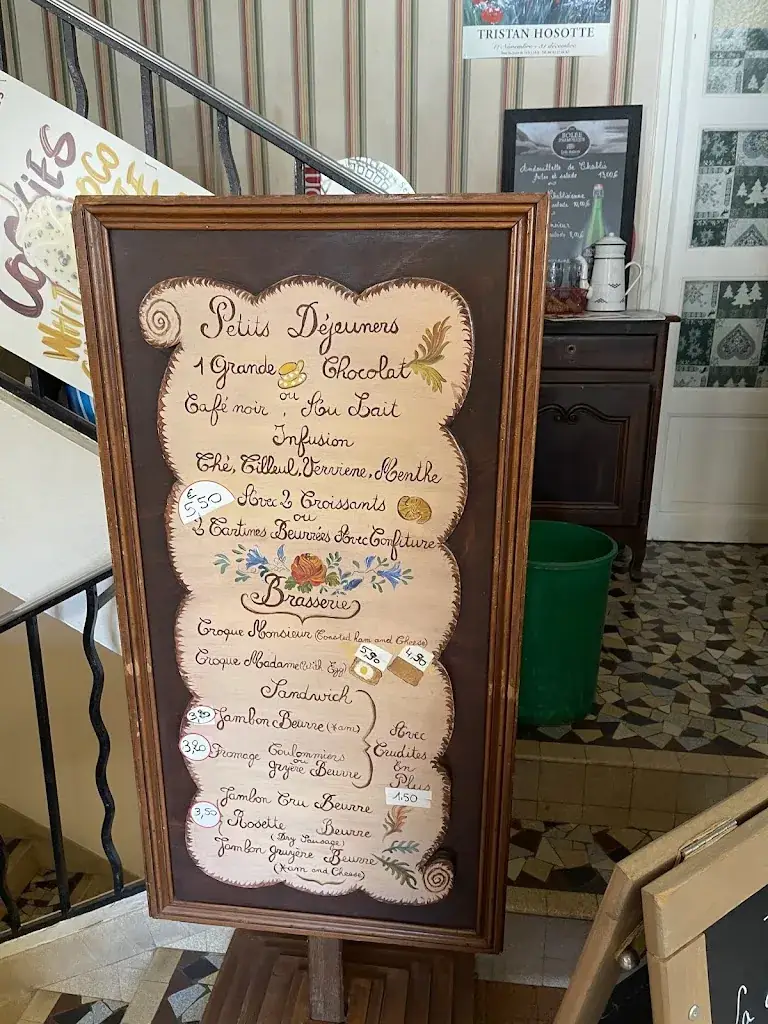 TRISTAN HOSOTTE
COOKIES
COCO
Andouillette de Chablis
frites et salade 13,00€
Petits Déjeuners
1 Grande Chocolat
ou
Café noir, Au Lait
Infusion
Thé, Tilleul, Verviene, Menthe
€ 5,50
Avec 2 Croissants
ou
2 Tartines Beurrées Avec Confiture
Brasserie
Croque Monsieur (Toasted ham and Cheese)
Croque Madame (With Egg) 5,90 4,90
Sandwich
Jambon Beurre (Ham)
3,20 Fromage Coulommiers
ou
gryère Beurre
Avec
Crudites
En
Plus
1.50
Jambon Cru Beurre
3,50 Rosette Beurre
(Dry Sausage)
Jambon gruyère Beurre
(Ham and Cheese)